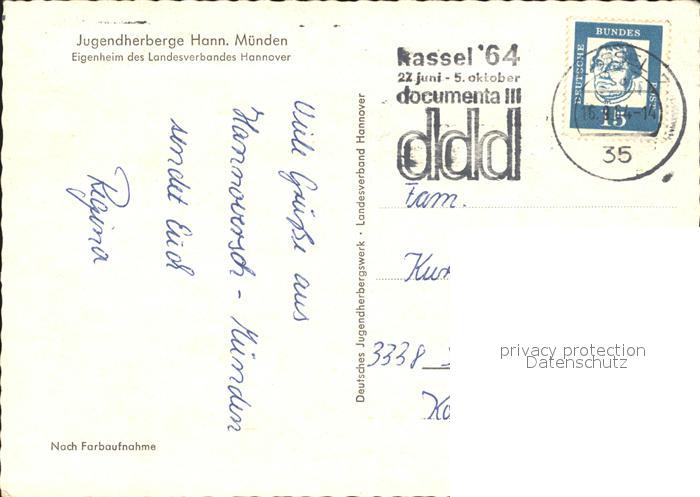 Jugendherberge Hann. Münden
Eigenheim des Landesverbandes Hannover
Viele Grüße aus
Hannoversch - Münden
sendet Euch
Regina
Nach Farbaufnahme
Deutsches Jugendherbergswerk · Landesverband Hannover
kassel '64
27 juni - 5. oktober
documenta III
ddd
DEUTSCHE BUNDES
15
35
Fam.
3338
privacy protection
Datenschutz